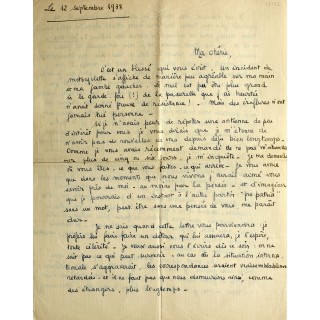 Le 12 septembre 1938
Ma chérie,
C'est un blessé qui vous écrit. Un incident de
motocyclette s'affiche de manière peu agréable sur ma main
et ma jambe gauches - et nul est pas plus grand
si le garde-fou (!!) de la passerelle que j'ai heurtée
n'avait donné preuve de résistance ! Mais des éraflures n'ont
jamais tué personne.
Si je n'avais peur de répéter une antienne de peu
d'intérêt pour vous je vous dirais que je m'étonne de
n'avoir pas de nouvelles de vous depuis déjà bien longtemps.
Comme je vous avais récemment demandé de ne pas m'abandonner
plus de cinq ou six jours, je m'inquiète. Je me demande
où vous êtes, ce que vous faites, ce qui arrive. Je vous avoue
que dans les moments que nous vivons j'aurais aimé vous
savoir près de moi - au moins par la pensée - et d'imaginer
que je pourrais d'un instant à l'autre partir
sans un mot, peut-être sans une pensée de vous me paraît
dur.
Je ne sais quand cette lettre vous parviendra. Je
préfère lui faire faire un détour qui lui assurera, je l'espère,
toute célérité. Je veux aussi vous l'écrire dès ce soir : on ne
sait pas ce qui peut survenir - au cas où la situation interna-
tionale s'aggraverait, les correspondances seraient vraisemblablement
retardées - et il ne faut pas que nous demeurions ainsi, comme
des étrangers, plus longtemps.